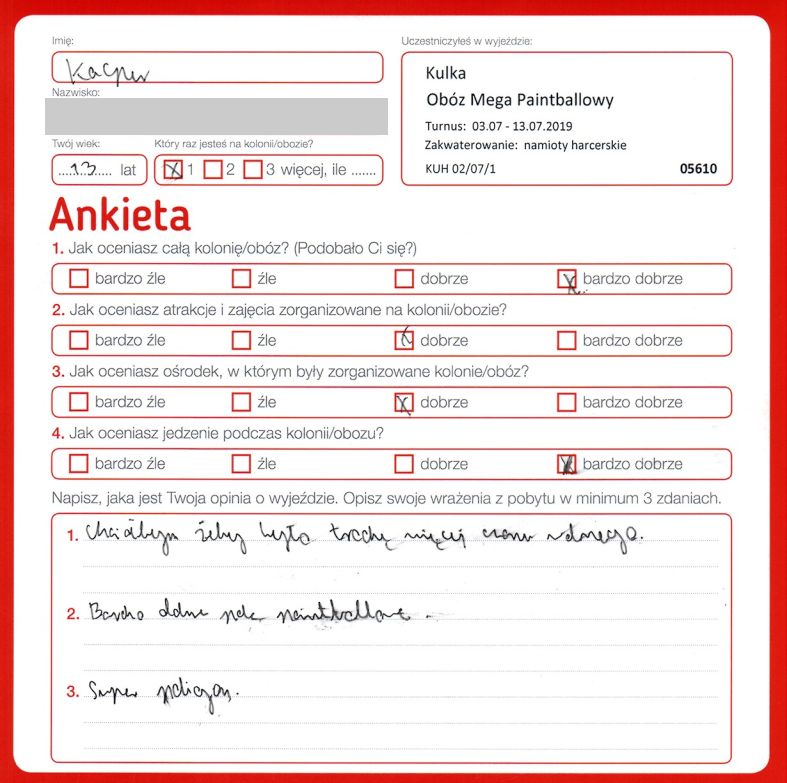 Imię:
Kacper
Nazwisko:
Twój wiek:
13 lat
Który raz jesteś na kolonii/obozie?
1 2 3 więcej, ile .......
Uczestniczyłeś w wyjeździe:
Kulka
Obóz Mega Paintballowy
Turnus: 03.07 - 13.07.2019
Zakwaterowanie: namioty harcerskie
KUH 02/07/1 05610
Ankieta
1. Jak oceniasz całą kolonię/obóz? (Podobało Ci się?)
bardzo źle źle dobrze bardzo dobrze
2. Jak oceniasz atrakcje i zajęcia zorganizowane na kolonii/obozie?
bardzo źle źle dobrze bardzo dobrze
3. Jak oceniasz ośrodek, w którym były zorganizowane kolonie/obóz?
bardzo źle źle dobrze bardzo dobrze
4. Jak oceniasz jedzenie podczas kolonii/obozu?
bardzo źle źle dobrze bardzo dobrze
Napisz, jaka jest Twoja opinia o wyjeździe. Opisz swoje wrażenia z pobytu w minimum 3 zdaniach.
1. Chciałbym żeby było trochę więcej czasu wolnego.
2. Bardzo dobre pole paintballowe.
3. Super poligon.